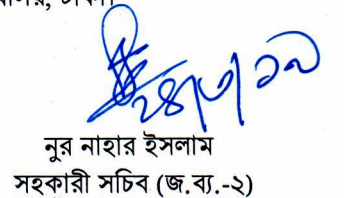 ঢাকা।
২৪/৩/১৯
নুর নাহার ইসলাম
সহকারী সচিব (জ.ব্য.-২)